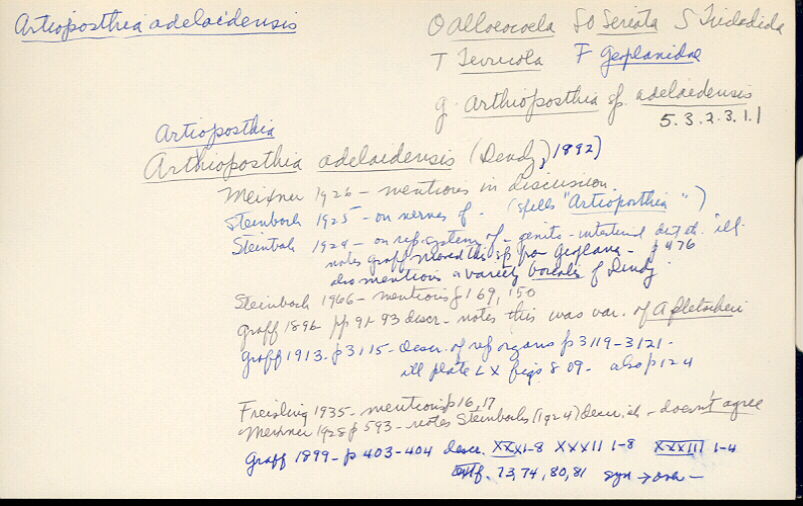 Artioposthia adelaidensis
O Alloeocoela SO Seriata S Tricladida
T Terricola F Geoplanidae
g. Arthioposthia sp. adelaidensis
5.3.2.3.1.1
Artioposthia
Arthioposthia adelaidensis (Dendy, 1892)
Meixner 1926 - mentions in discussion.
Steinboch 1925 - on nerves of. (spells "Artioposthia")
Steinboch 1924 - on rep. system of - genito-intestinal duct ill.
notes Graff moved this sp from Geoplana - p 476
also mentions a variety of Dendy
Steinboch 1966 - mentions p 169, 150
Graff 1896 pp 91-93 descr - notes this was var. of A. fletscheri
Graff 1913 - p 3115 - Descr. of rep organs p 3119-3121 -
ill plate LX figs 8 09 - also p 124
Freisling 1935 - mentions p 16, 17
Meixner 1928 p 593 - notes Steinbochs (1924) descr. - doesn't agree
Graff 1899 - p 403-404 descr. XXXI-8 XXXII 1-8 XXXIII 1-4
textf. 73, 74, 80, 81 syn → over -